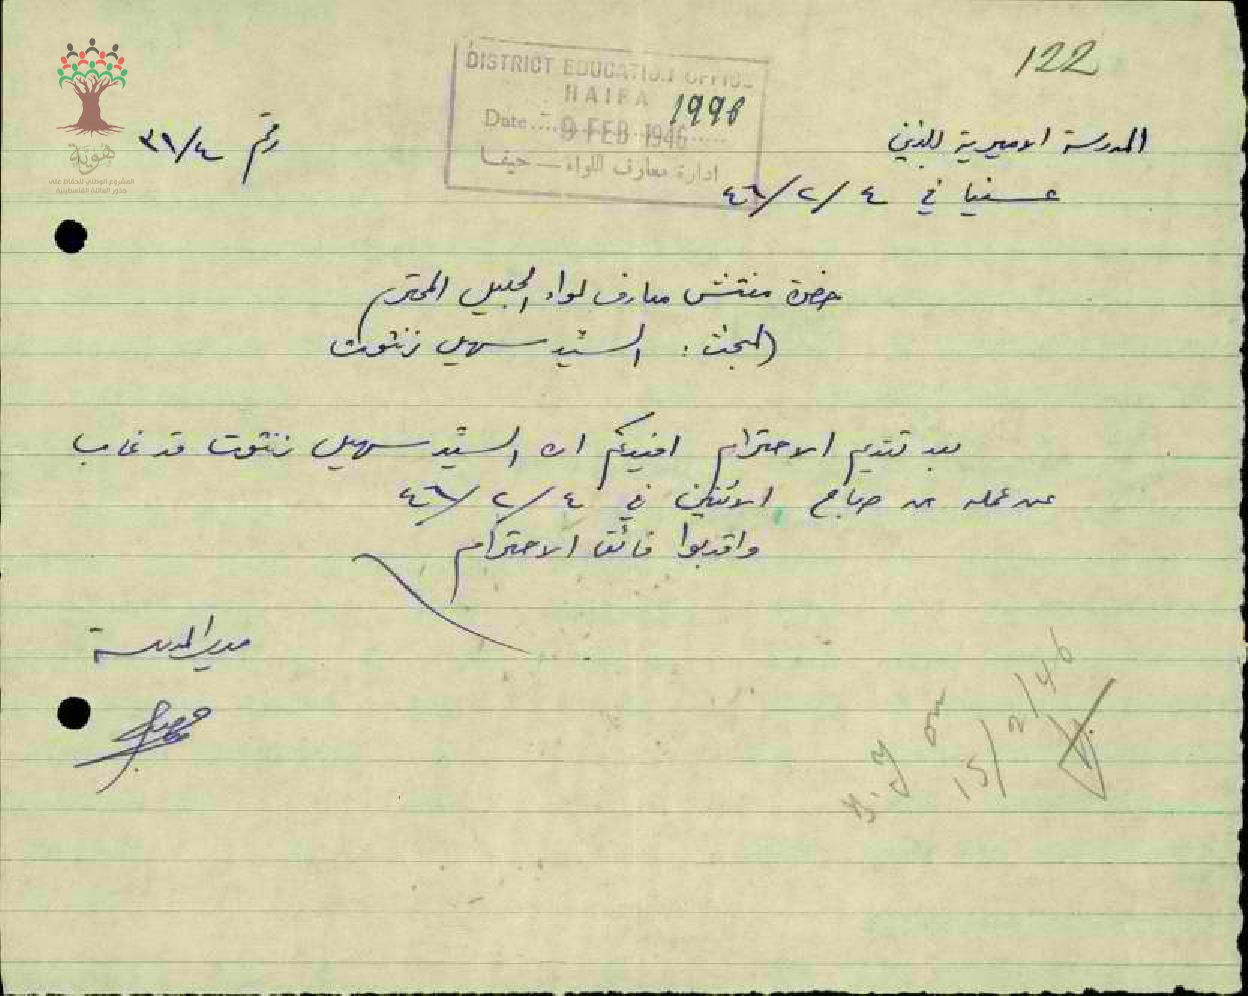 122
DISTRICT EDUCATION OFFICE
HAIFA
1998
Date 9 FEB 1946
ادارة معارف اللواء — حيفا
هوية
المشروع الوطني للحفاظ على
جذور العائلة الفلسطينية
المدرسة الاميرية للبنين
رقم ٣١/٤
عسفيا في ٤/٢/٤٦
حضرة مفتش معارف لواء الجليل المحترم
المبحث: السيد سهيل زنتوت
بعد تقديم الاحترام افيدكم ان السيد سهيل زنتوت قد غاب
عن عمله عن صباح الاثنين في ٤/٢/٤٦
واقبلوا فائق الاحترام
مدير المدرسة
B.Y on
15/2/46